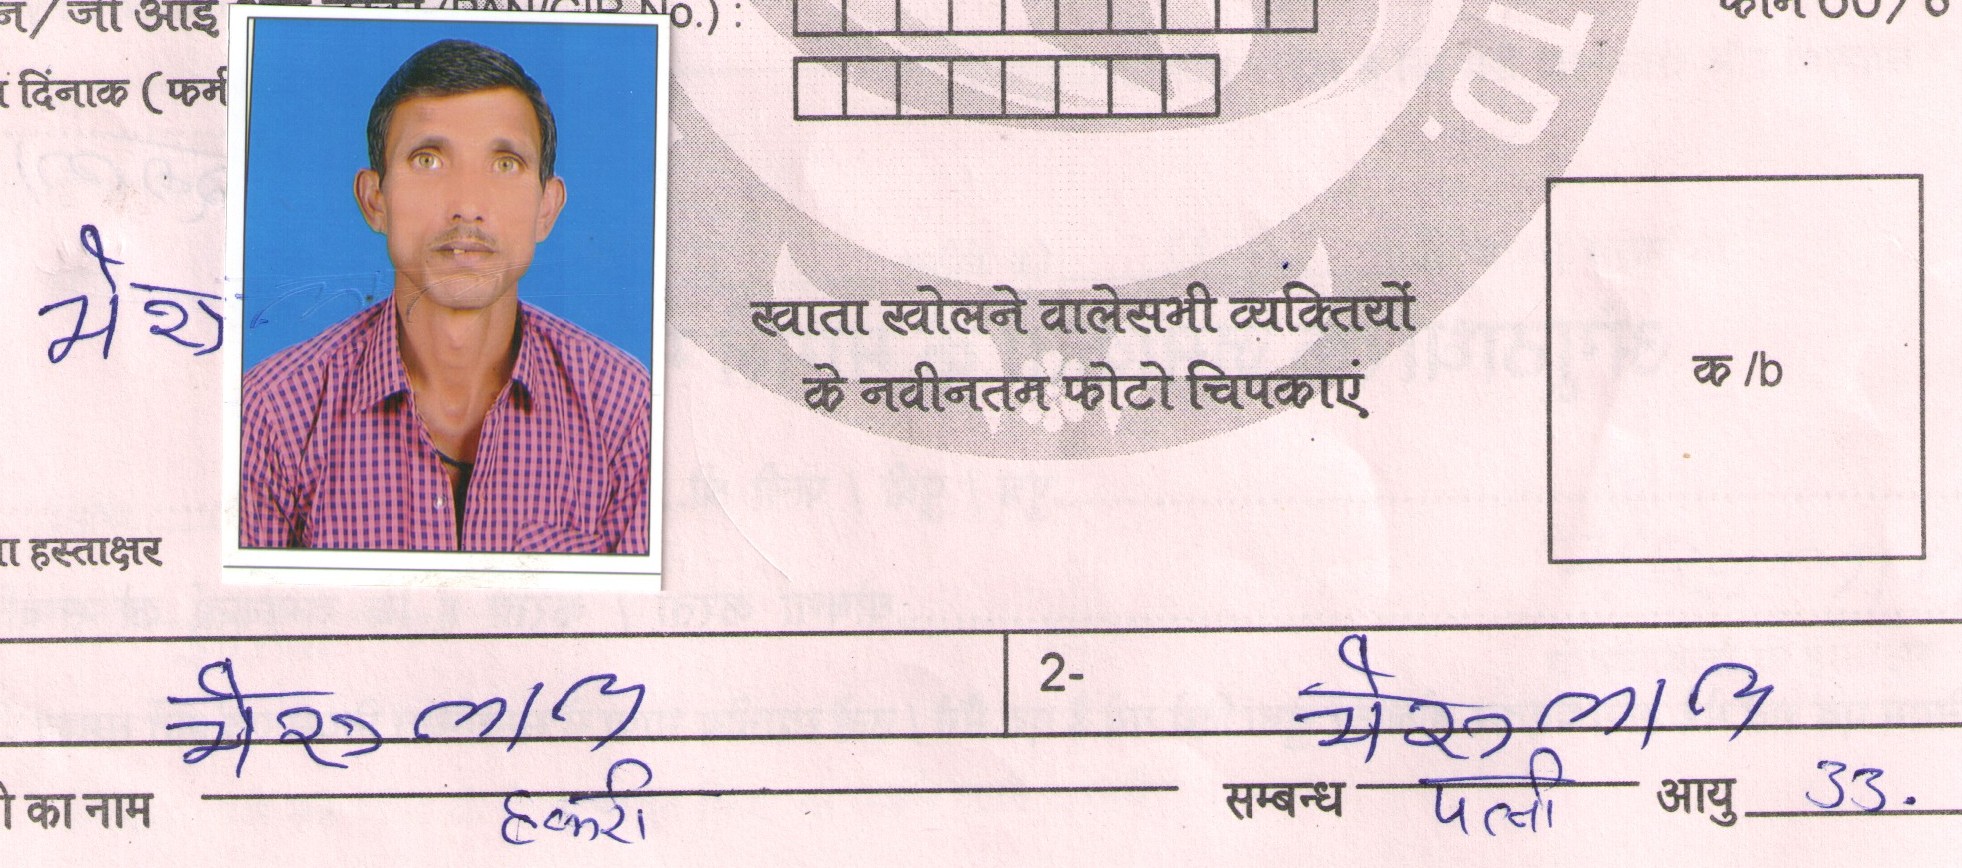 न/जी आई
/PAN/GIR No.) :
फार्म 60/6
दिंनाक (फर्म
TD.
खाता खोलने वालेसभी व्यक्तियों
के नवीनतम फोटो चिपकाएं
क /b
हस्ताक्षर
भैरू लाल
2- भैरू लाल
का नाम हकरी सम्बन्ध पत्नी आयु 33.